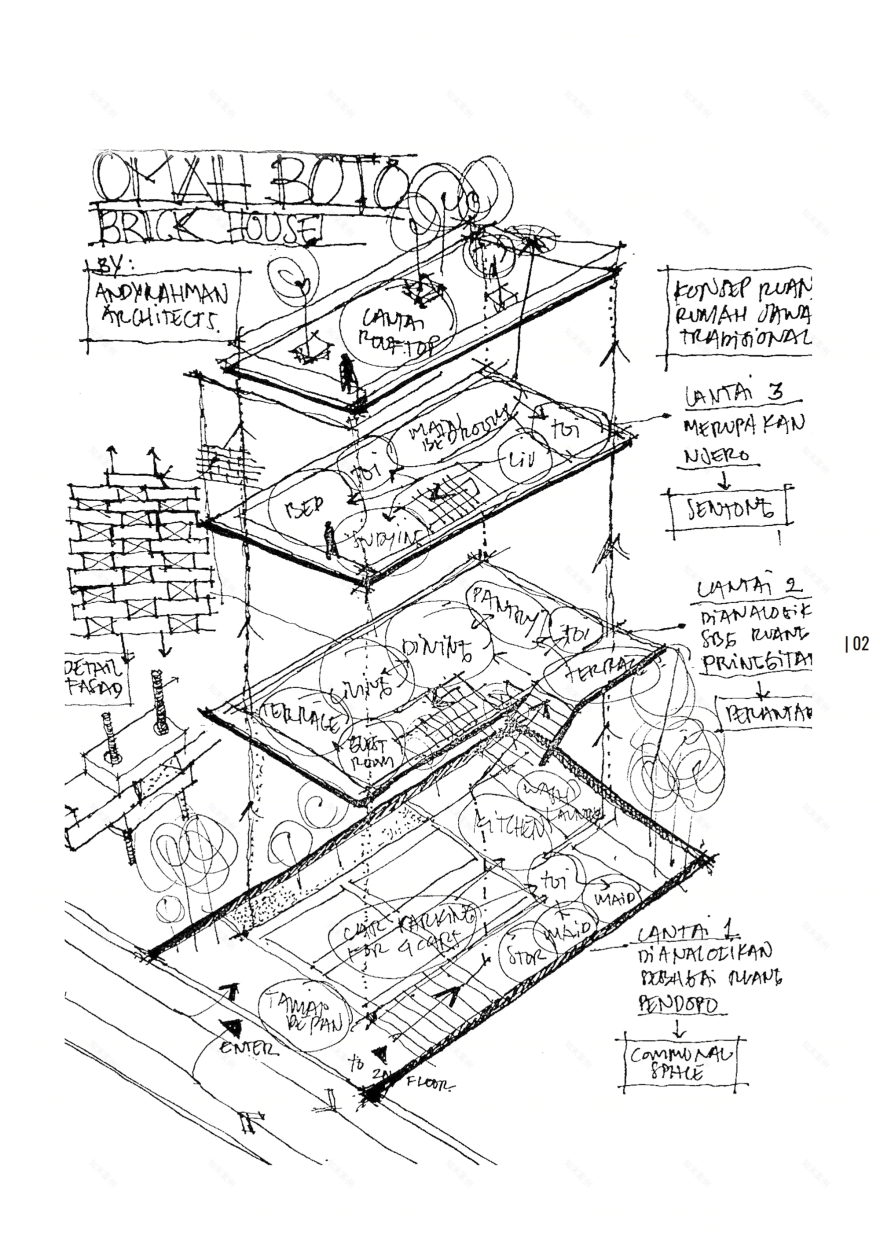 OMAH BOTO
BRICK HOUSE
BY:
ANDYRAHMAN
ARCHITECTS.
LANTAI
ROOFTOP
KONSEP RUAN
RUMAH JAWA
TRADISIONAL
LANTAI 3
MERUPAKAN
NJERO
SENTONG
MAIN
BEDROOM
TOI
TOI
LIV
BED
LANTAI 2
DIANALOGIK
SBG RUANG
PRINGGITA
PERANTAR
PANTRY
TOI
DINING
TERRACE
LIVING
TERRACE
GUEST
ROOM
DETAIL
FASAD
| 02
WASH
LAUNDRY
KITCHEN
TOI
MAID
MAID
STOR
CAR PARKING
FOR 4 CARS
TAMAN
DEPAN
ENTER
to
2ND
FLOOR
LANTAI 1
DIANALOGIKAN
SEBAGAI RUANG
PENDOPO
COMMUNAL
SPACE